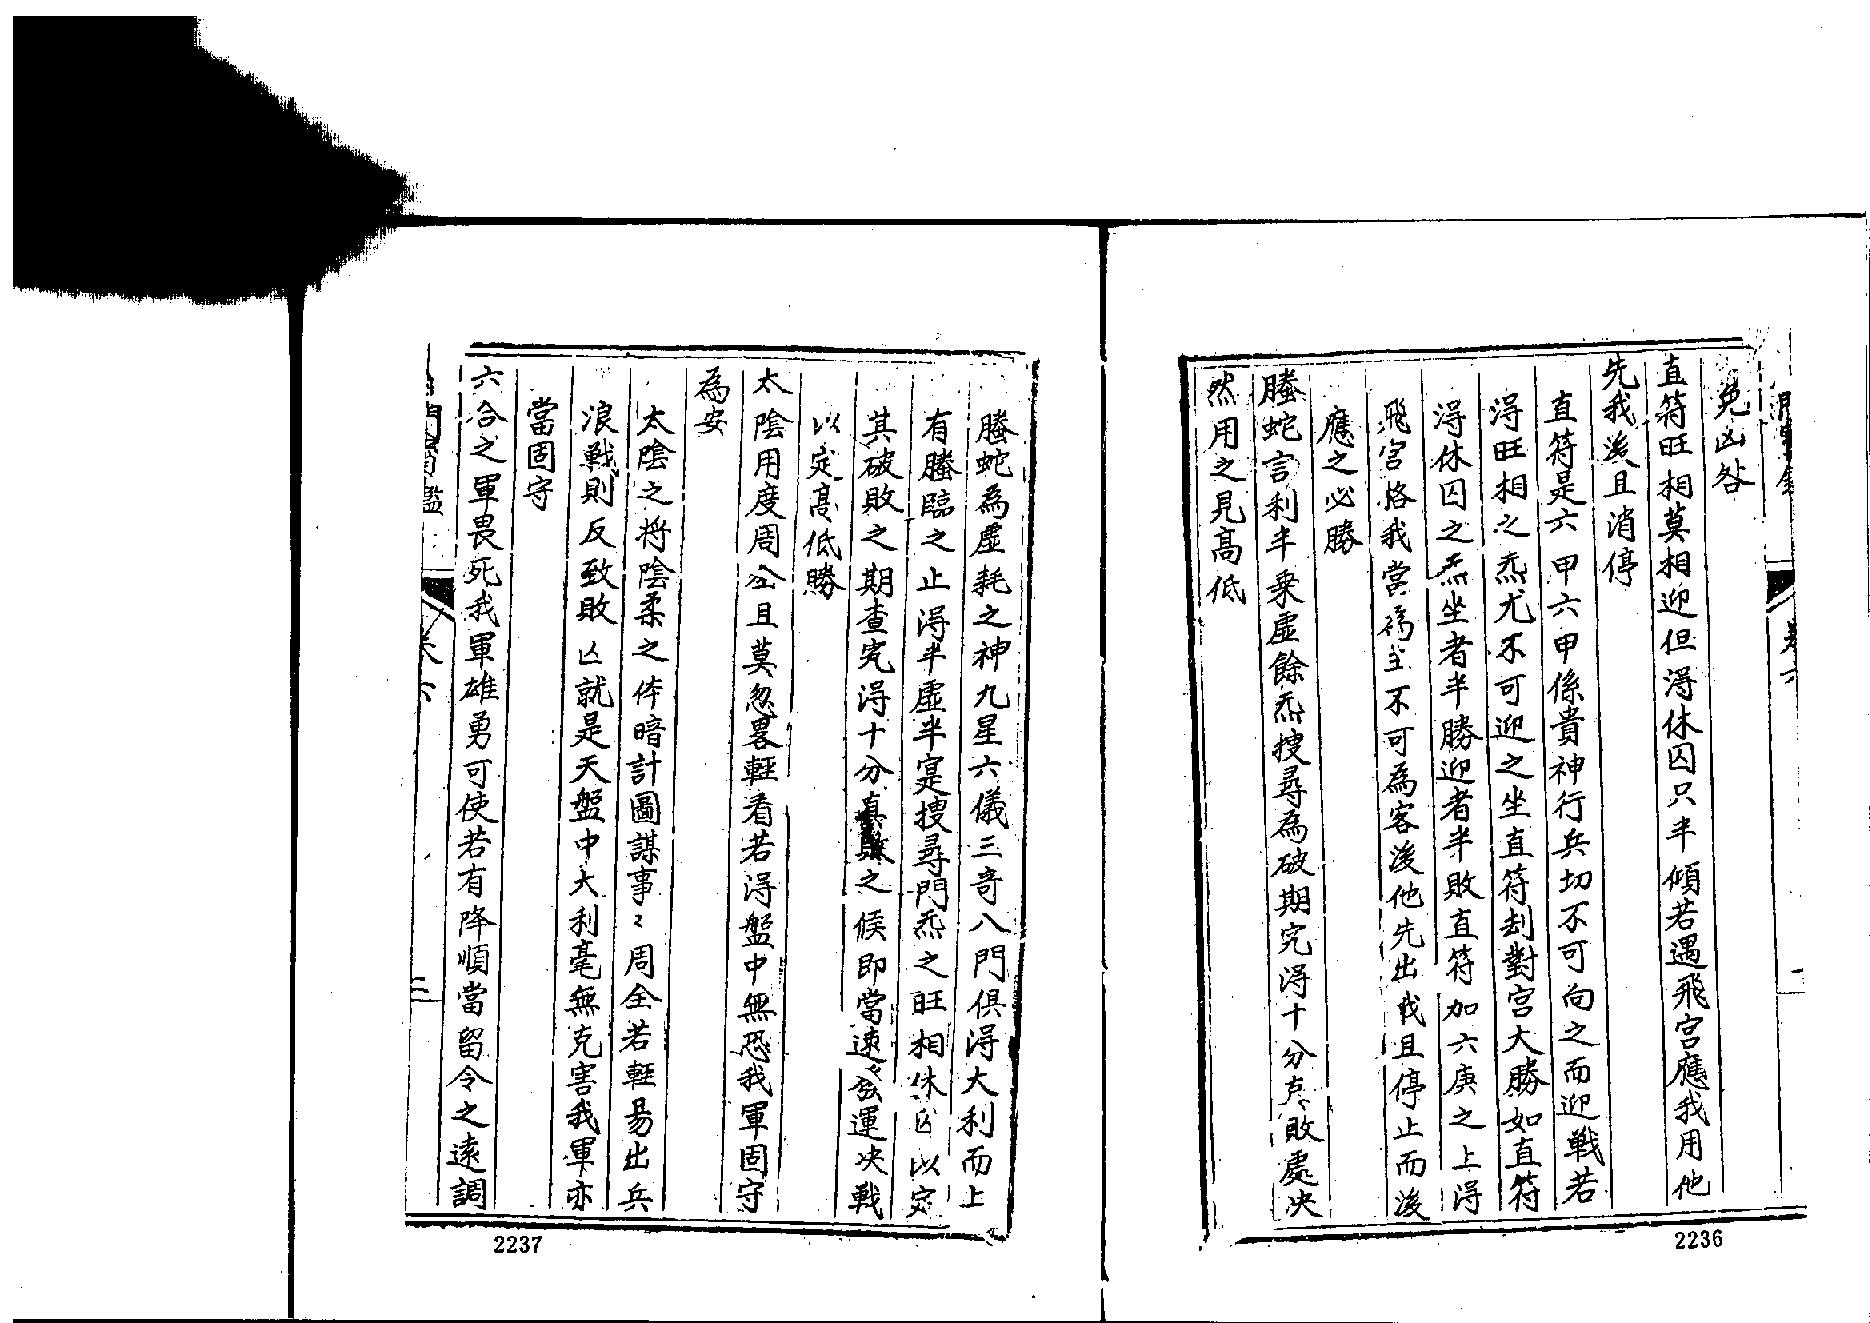 免凶咎
直符旺相莫相迎但淂休囚只半傾若遇飛宮應我用他
先我後且消停
直符是六甲六甲係貴神行兵切不可向之而迎戰若
淂旺相之炁尤不可迎之坐直符刦對宮大勝如直符
淂休囚之炁坐者半勝迎者半敗直符加六庚之上淂
飛宮格我當為主不可為客後他先出我且停止而後
應之必勝
螣蛇言利半乗虛餘炁捜尋為破期究淂十分真敗處决
然用之見高低
2236
螣蛇為虛耗之神九星六儀三竒八門俱淂大利而上
有螣臨之止淂半虛半寔捜尋門炁之旺相休囚以定
其破敗之期查究淂十分真之候即當速發運决戰
以定高低勝
太陰用度周公且莫忽畧輕看若淂盤中無恐我軍固守
為安
太陰之將陰柔之体暗計圖謀事〻周全若輕易出兵
浪戰則反致敗亾就是天盤中大利毫無克害我軍亦
當固守
六合之軍畏死我軍雄勇可使若有降順當留令之遠調
卷六
三
2237